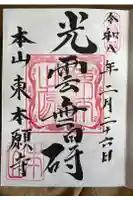 令和六年二月二十六日
光雲無碍
本山東本願寺